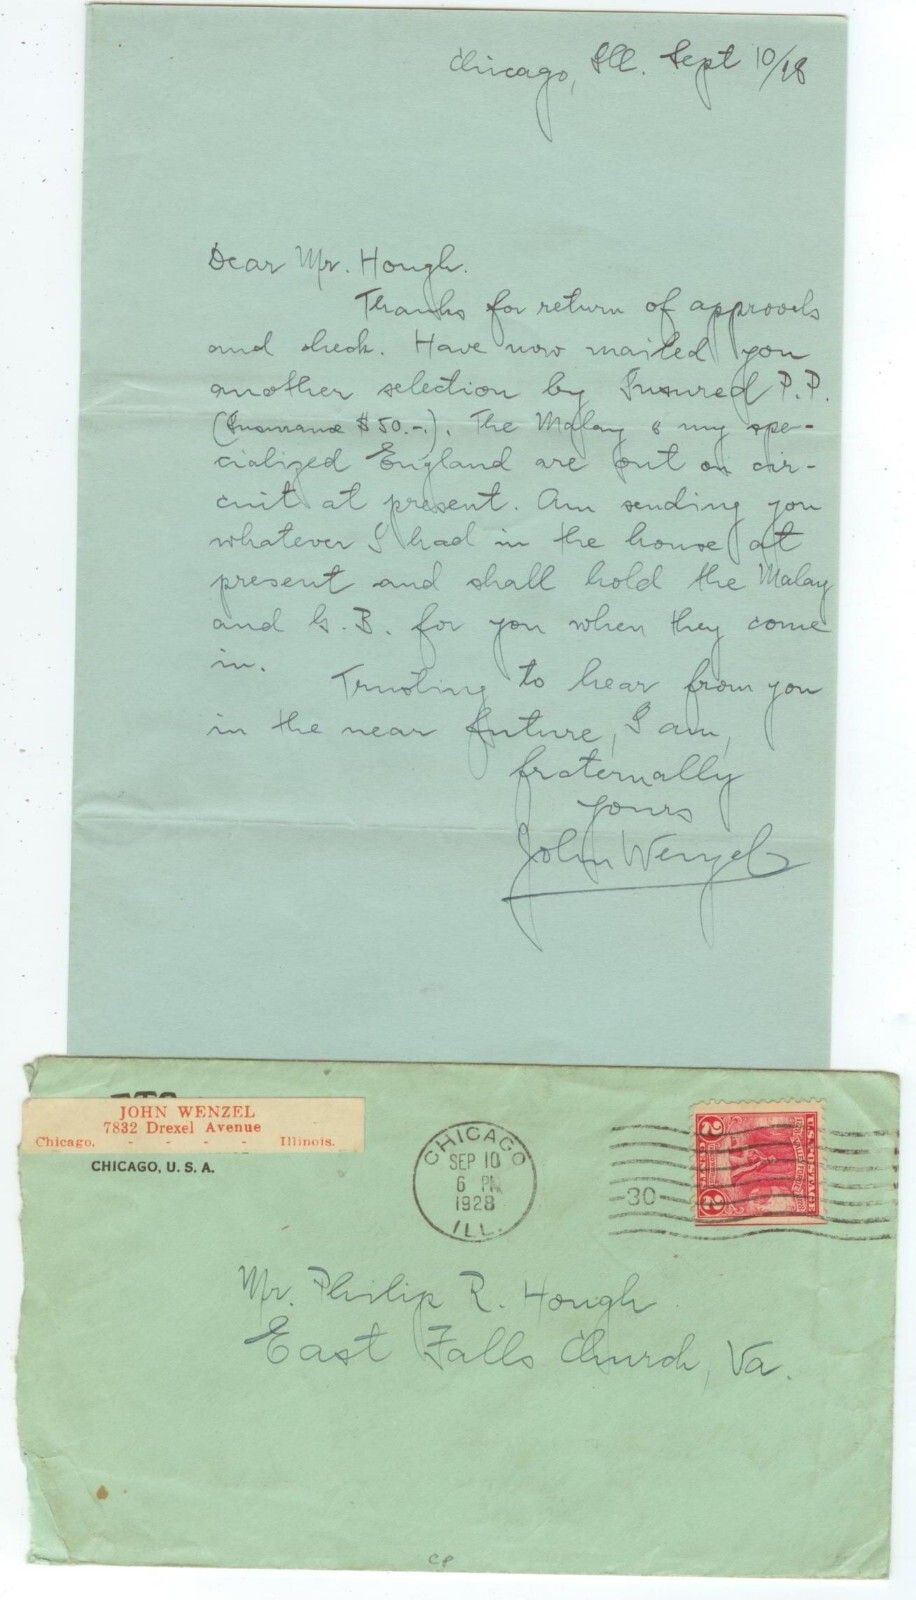 Chicago, Ill. Sept 10/28
Dear Mr. Hough.
Thanks for return of approvals
and check. Have now mailed you
another selection by Insured P.P.
(Insurance $50.-.). The Malay & my spe-
cialized England are out on cir-
cuit at present. Am sending you
whatever I had in the house at
present and shall hold the Malay
and G.B. for you when they come
in.
Trusting to hear from you
in the near future, I am,
fraternally
yours
John Wenzel
JOHN WENZEL
7832 Drexel Avenue
Chicago, - - - - Illinois.
CHICAGO, U. S. A.
CHICAGO
SEP 10
6 PM
1928
ILL.
30
U.S. POSTAGE
2 CENTS 2
Mr. Philip R. Hough
East Falls Church, Va.